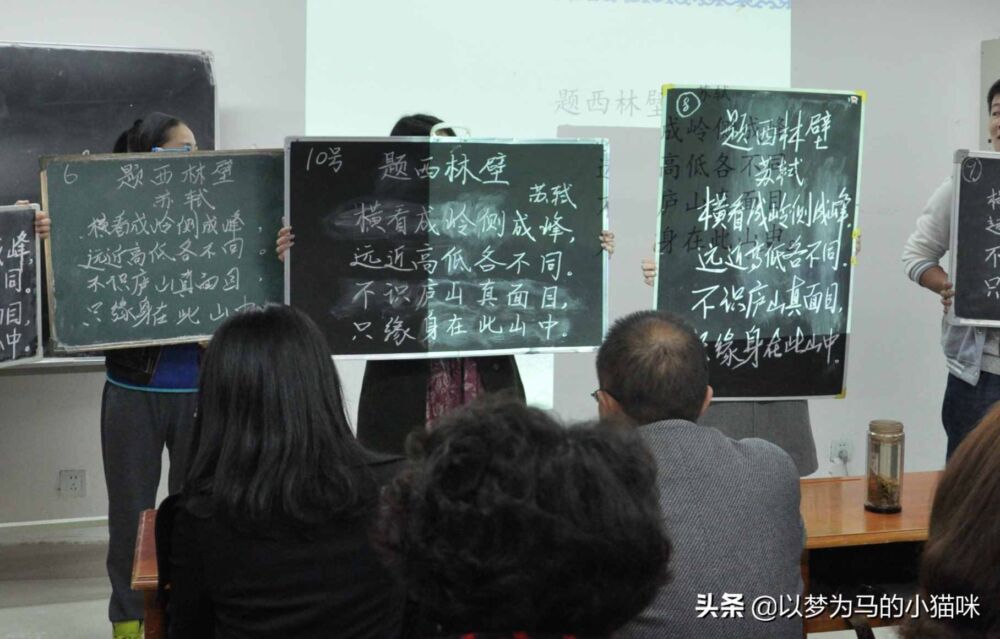 峰,
同。
目,
中。
6 题西林壁
苏轼
横看成岭侧成峰,
远近高低各不同。
不识庐山真面目
只缘身在此山中
10号 题西林壁
苏轼
横看成岭侧成峰,
远近高低各不同。
不识庐山真面目,
只缘身在此山中。
题西林壁 苏轼
⑧ 题西林壁
苏轼
横看成岭侧成峰,
远近高低各不同.
不识庐山真面目,
只缘身在此山中.
横
不
只
头条 @以梦为马的小猫咪